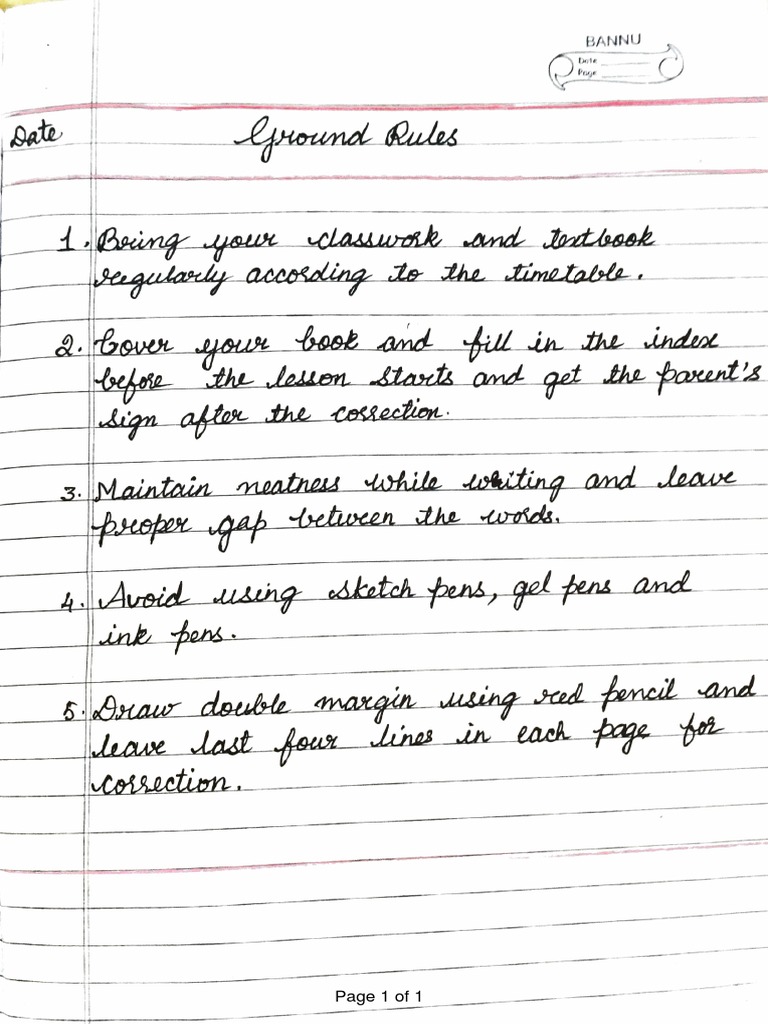 BANNU
Date
Page
Date
Ground Rules
1. Bring your classwork and textbook
regularly according to the timetable.
2. Cover your book and fill in the index
before the lesson starts and get the parent's
sign after the correction.
3. Maintain neatness while writing and leave
proper gap between the words.
4. Avoid using sketch pens, gel pens and
ink pens.
5. Draw double margin using red pencil and
leave last four lines in each page for
correction.
Page 1 of 1